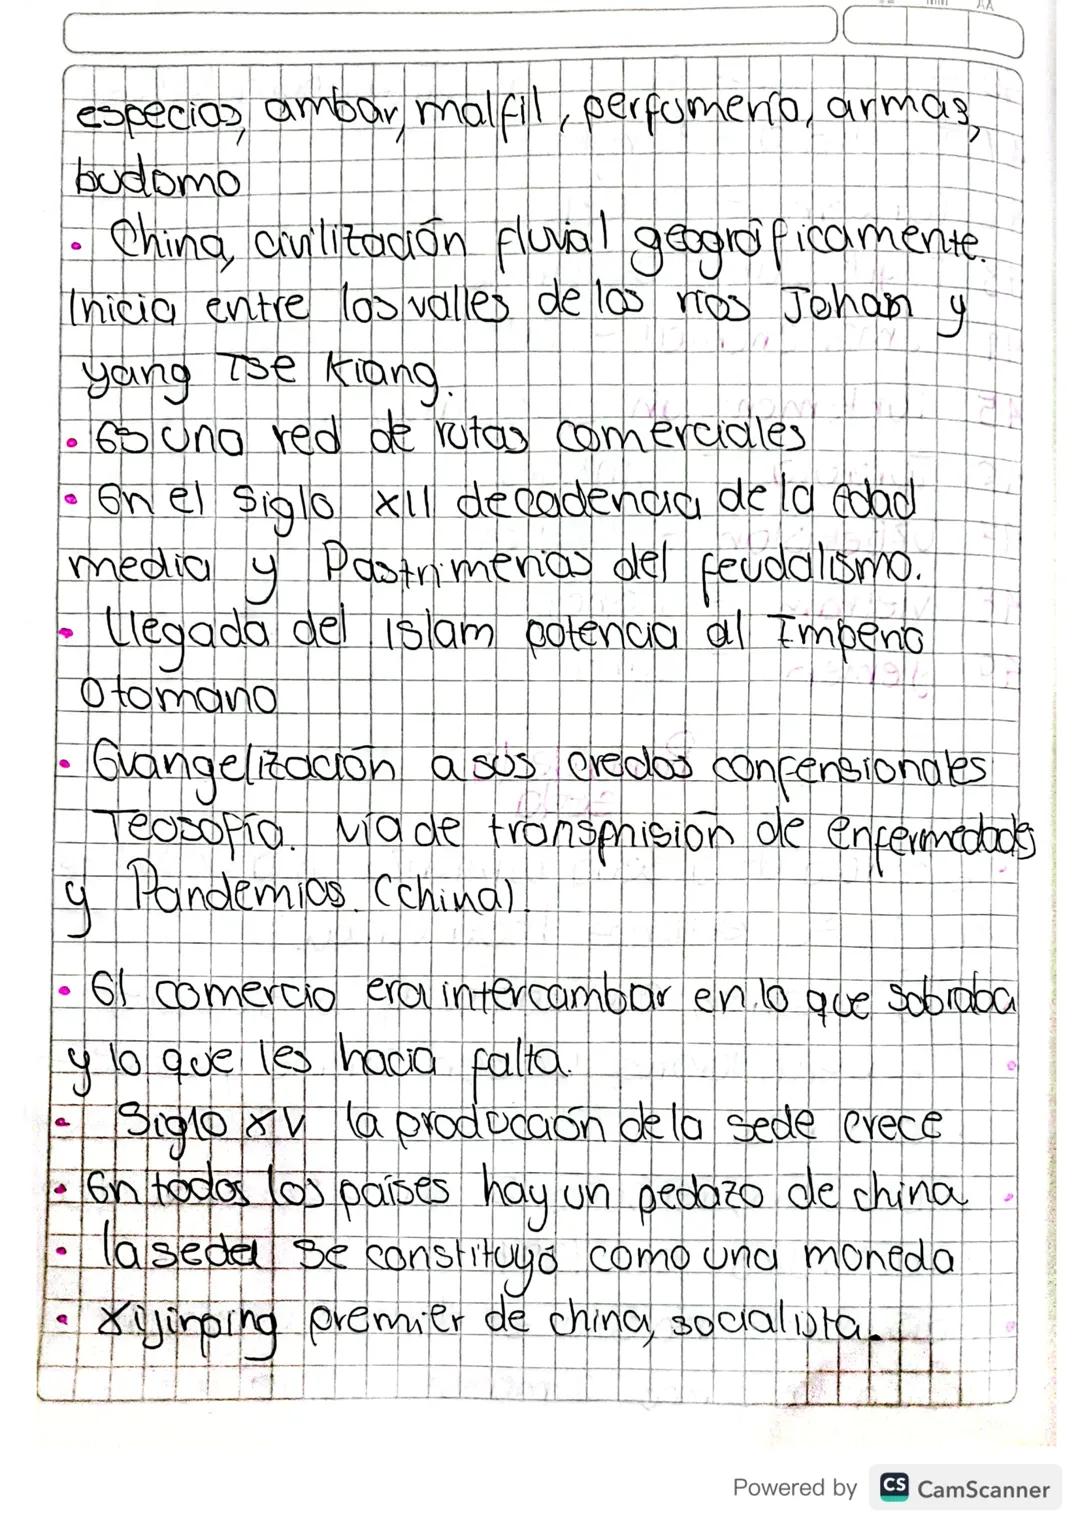 especias, ambar, malfil, perfumeria, armas,
budismo
• China, civilización fluvial geográficamente.
Inicia entre los valles de los rios Johan y
yang Tse Kiang.
• Es una red de rutas comerciales
• En el Siglo XII decadencia de la Edad
media y Pastrimerias del feudalismo.
• Llegada del islam potencia al Imperio
Otomano
• Evangelización a sus credos confensionales
Teosofía. Via de transmisión de enfermedades
y Pandemias. (China).
• El comercio era intercambiar en lo que sobraba
y lo que les hacia falta.
• Siglo XV la producción de la sede crece
• En todos los paises hay un pedazo de china
• la seda se constituyó como una moneda
• Xijinping premier de china, socialista.
Powered by CS CamScanner